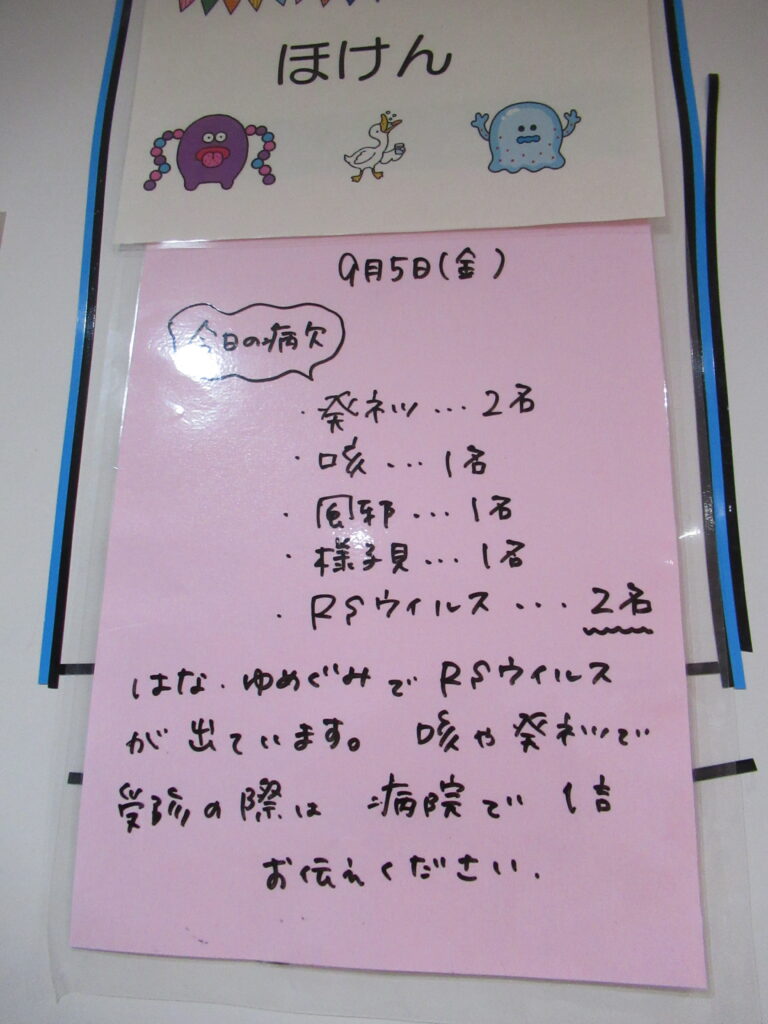 ほけん
9月5日(金)
今日の病欠
・発ネツ...2名
・咳...1名
・風邪...1名
・様子見...1名
・RSウイルス...2名
はな・ゆめぐみでRSウイルス
が出ています。咳や発ネツで
受診の際は病院で1言
お伝えください.